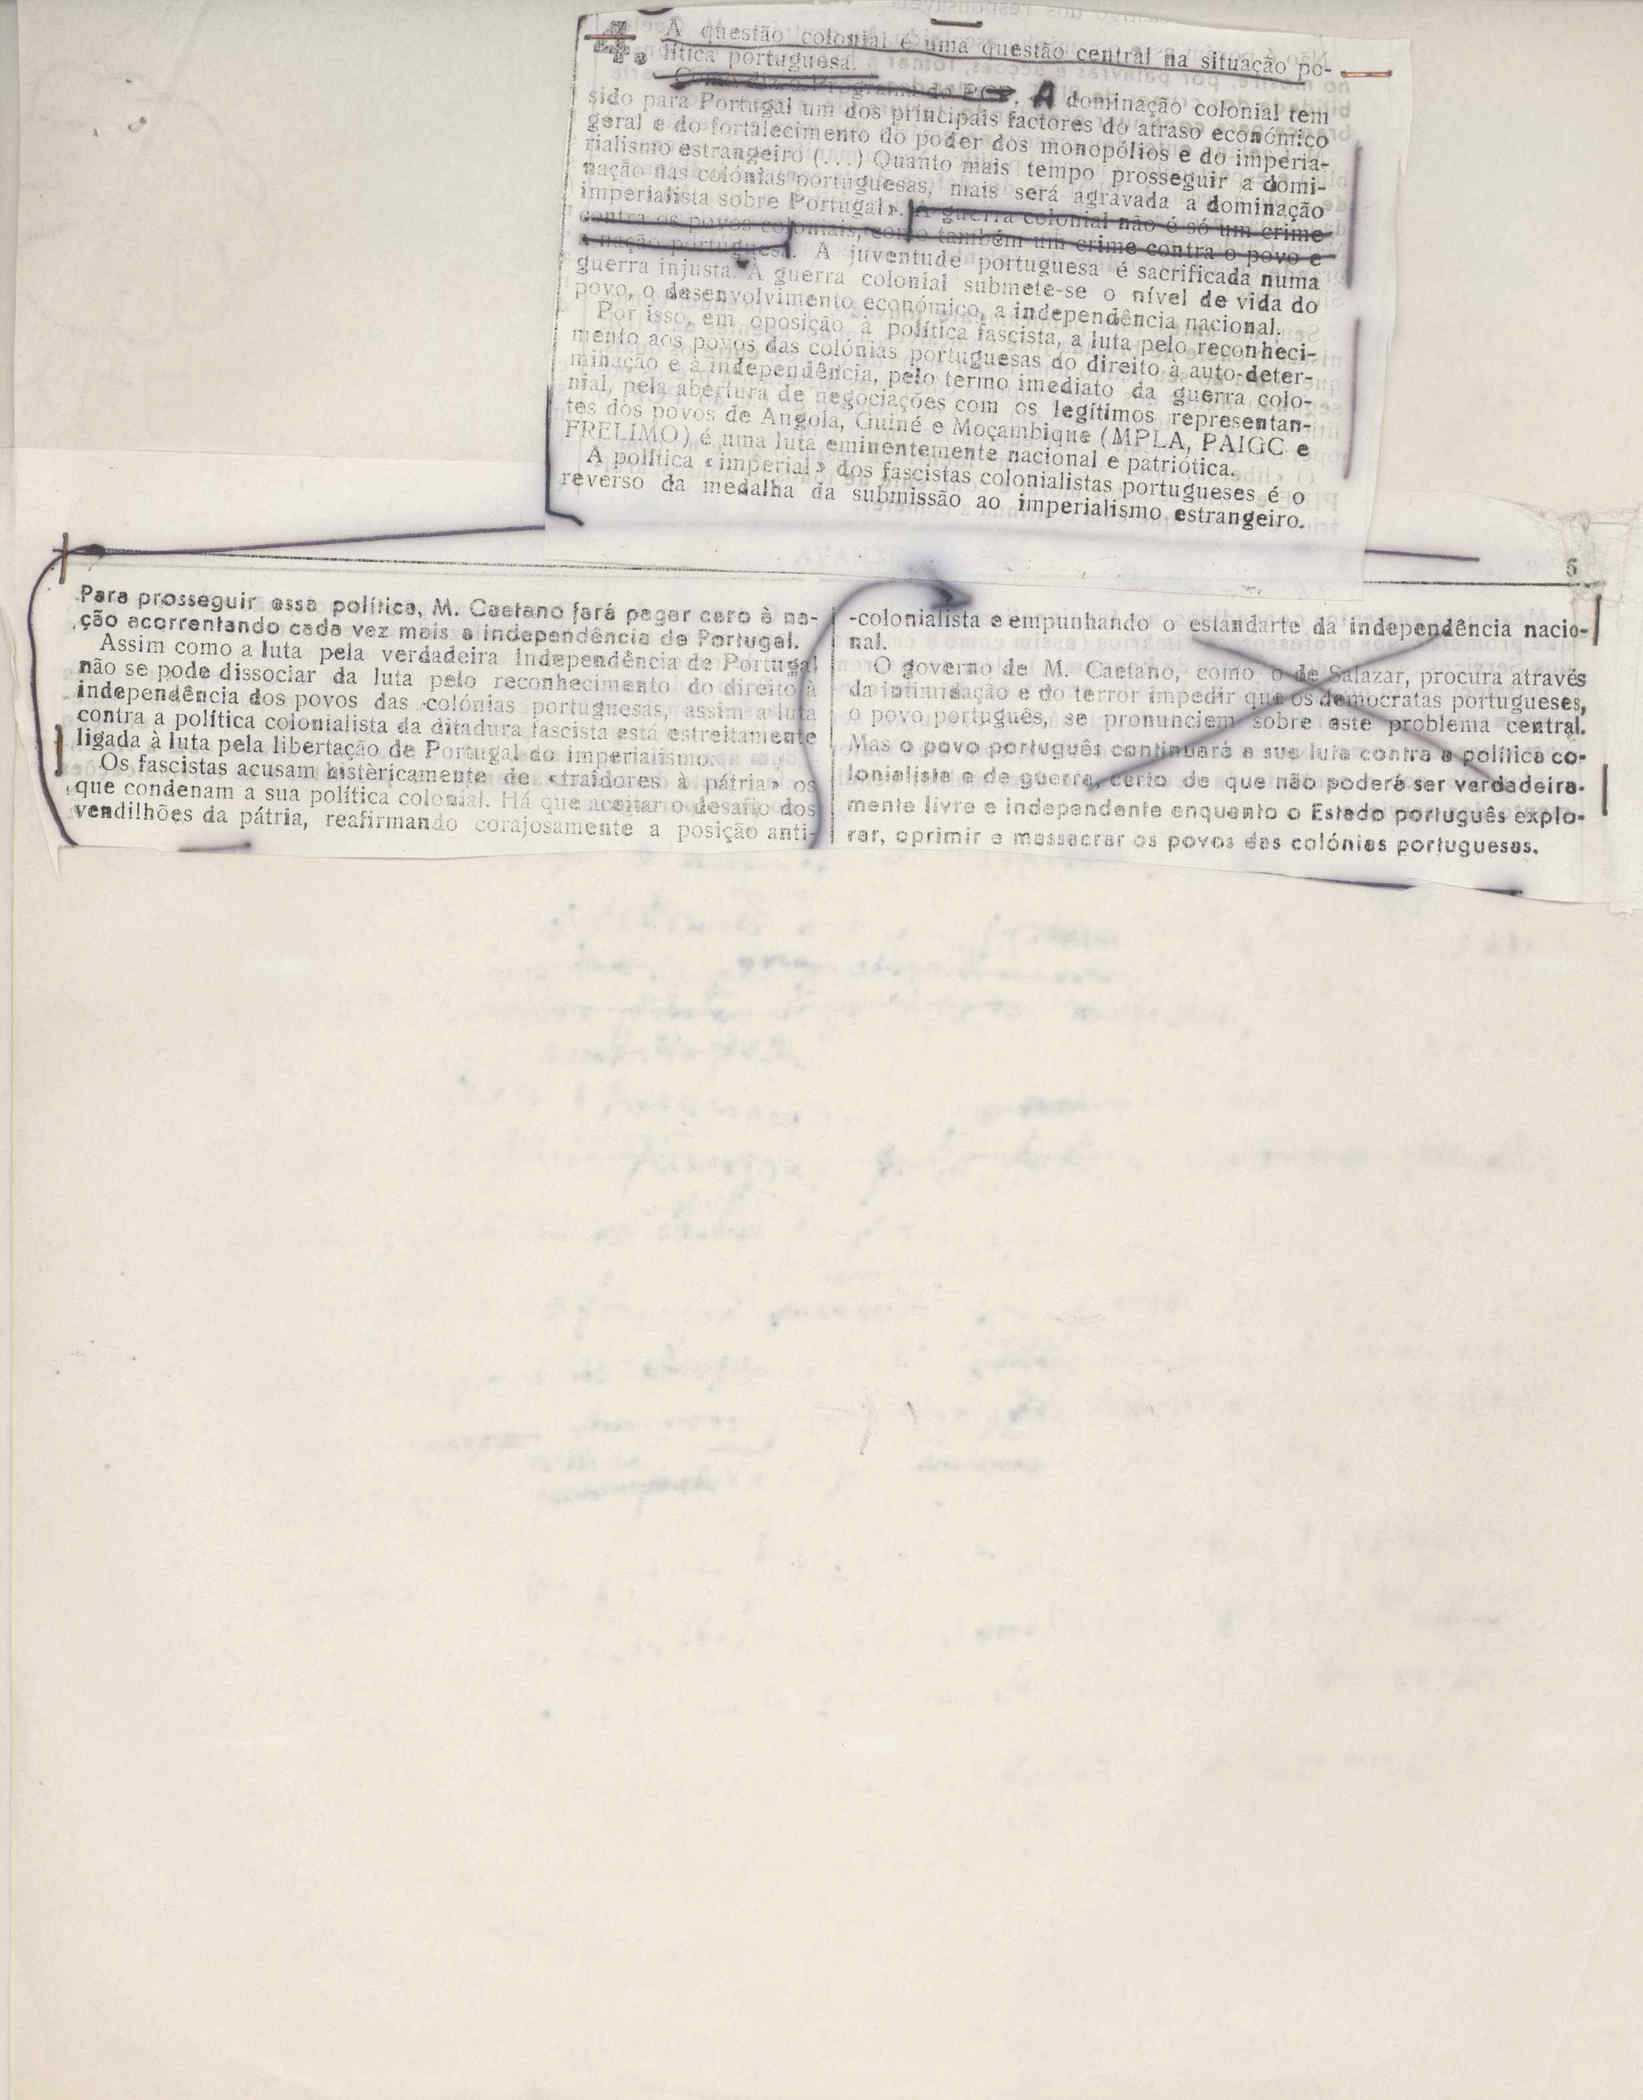 4. A questão colonial é uma questão central na situação po-
lítica portuguesa.
Como diz o Programa do PCP, A dominação colonial tem
sido para Portugal um dos principais factores do atraso económico
geral e do fortalecimento do poder dos monopólios e do imperia-
rialismo estrangeiro (...) Quanto mais tempo prosseguir a domi-
nação nas colónias portuguesas, mais será agravada a dominação
imperialista sobre Portugal». A guerra colonial não é só um crime
contra os povos coloniais, como também um crime contra o povo e
a nação portuguesa. A juventude portuguesa é sacrificada numa
guerra injusta. A guerra colonial submete-se o nível de vida do
povo, o desenvolvimento económico, a independência nacional.
Por isso, em oposição à política fascista, a luta pelo reconheci-
mento aos povos das colónias portuguesas do direito à auto-deter-
minação e à independência, pelo termo imediato da guerra colo-
nial, pela abertura de negociações com os legítimos representan-
tes dos povos de Angola, Guiné e Moçambique (MPLA, PAIGC e
FRELIMO) é uma luta eminentemente nacional e patriótica.
A política «imperial» dos fascistas colonialistas portugueses é o
reverso da medalha da submissão ao imperialismo estrangeiro.
5
Para prosseguir essa política, M. Caetano fará pagar caro à na-
ção acorrentando cada vez mais a independência de Portugal.
Assim como a luta pela verdadeira independência de Portugal
não se pode dissociar da luta pelo reconhecimento do direito à
independência dos povos das colónias portuguesas, assim a luta
contra a política colonialista da ditadura fascista está estreitamente
ligada à luta pela libertação de Portugal do imperialismo.
Os fascistas acusam histèricamente de «traidores à pátria» os
que condenam a sua política colonial. Há que aceitar o desafio dos
vendilhões da pátria, reafirmando corajosamente a posição anti-
-colonialista e empunhando o estandarte da independência nacio-
nal.
O governo de M. Caetano, como o de Salazar, procura através
da intimidação e do terror impedir que os democratas portugueses,
o povo português, se pronunciem sobre este problema central.
Mas o povo português continuará a sua luta contra a política co-
lonialista e de guerra, certo de que não poderá ser verdadeira-
mente livre e independente enquanto o Estado português explo-
rar, oprimir e massacrar os povos das colónias portuguesas.